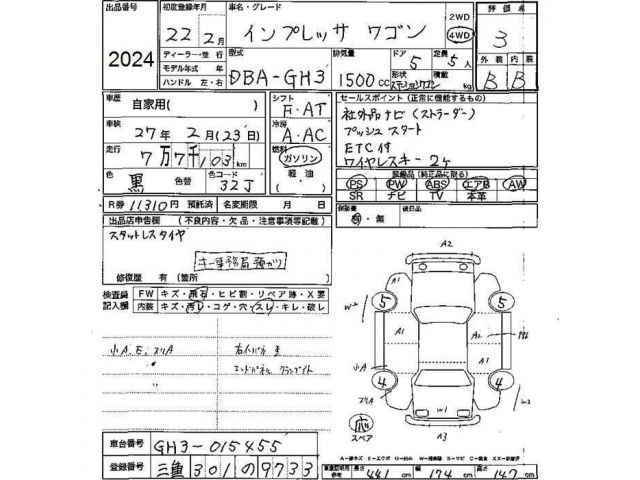 出品番号 初度登録年月 車名・グレード 評価点
2024 22年 2月 インプレッサ ワゴン 2WD 4WD 3
ディーラー・並行 型式 排気量 ドア 定員 外装 内装
モデル年式 年 DBA-GH3 1500cc 5 5人 B B
ハンドル 左・右 形状 ステーションワゴン 積載量 kg
車歴 自家用( ) シフト F・AT セールスポイント(正常に機能するもの)
車検 27年 2月(23日) 冷房 A・AC 社外品ナビ(ストラーダー)
プッシュスタート
走行 7万7千103km 燃料 ガソリン ETC付
軽油 ( ) ワイヤレスキー2ヶ
色 黒 色替 色コード 32J 装備品(純正品に限る)
PS PW ABS エアB AW
SR ナビ TV 本革
R券 11310円 預託済 名変期限 月 日 保証書 有・無 後日品
出品店申告欄 (不良内容・欠品・注意事項等記載)
スタットレスタイヤ
キー事務局預かり
修復歴 有 (箇所 )
検査員記入欄 FW キズ・飛石・ヒビ割・リペア跡・X要
内装 キズ・汚レ・コゲ・穴・スレ・キレ・破レ
小A.E.スリA
A2
A1
A1
W2
5 5
A1 A2
A2 A1
小A
4 4
スリA
W1
W2
A3
応
スペア
車台番号 GH3-015455
登録番号 三重 301 の 9733
長さ 441cm 幅 174cm 高さ 147cm